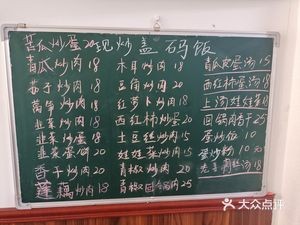 苦瓜炒蛋20现炒盖码饭
青瓜炒肉18
茄子炒肉18
莴笋炒肉18
韭菜炒肉18
韭菜炒蛋18
韭菜蛋饼20
香干炒肉20
莲藕炒肉18
木耳炒肉18
豆角炒肉20
红萝卜炒肉18
西红柿炒蛋20
土豆丝炒肉15
娃娃菜炒肉15
青椒炒肉20
青椒回锅肉25
青瓜皮蛋汤15
西红柿蛋汤18
上汤娃娃菜18
回锅肉干25
蛋炒饭10
蛋炒粉10元
老干肉丝汤18
大众点评